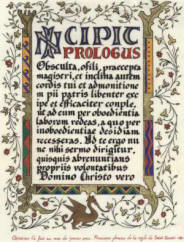 INCIPIT
PROLOGUS
Obsculta, o fili, praecepta
magistri, et inclina aurem
cordis tui et admonitione
m pii patris libenter exc
ipe et efficaciter comple,
ut ad eum per oboedientia
laborem redeas, a quo per
inoboedientiae desidiam
recesseras. Ad te ergo nu
nc mihi sermo dirigitur,
quisquis abrenuntians
propriis voluntatibus
Domino Christo vero
de la règle de Saint Benoît